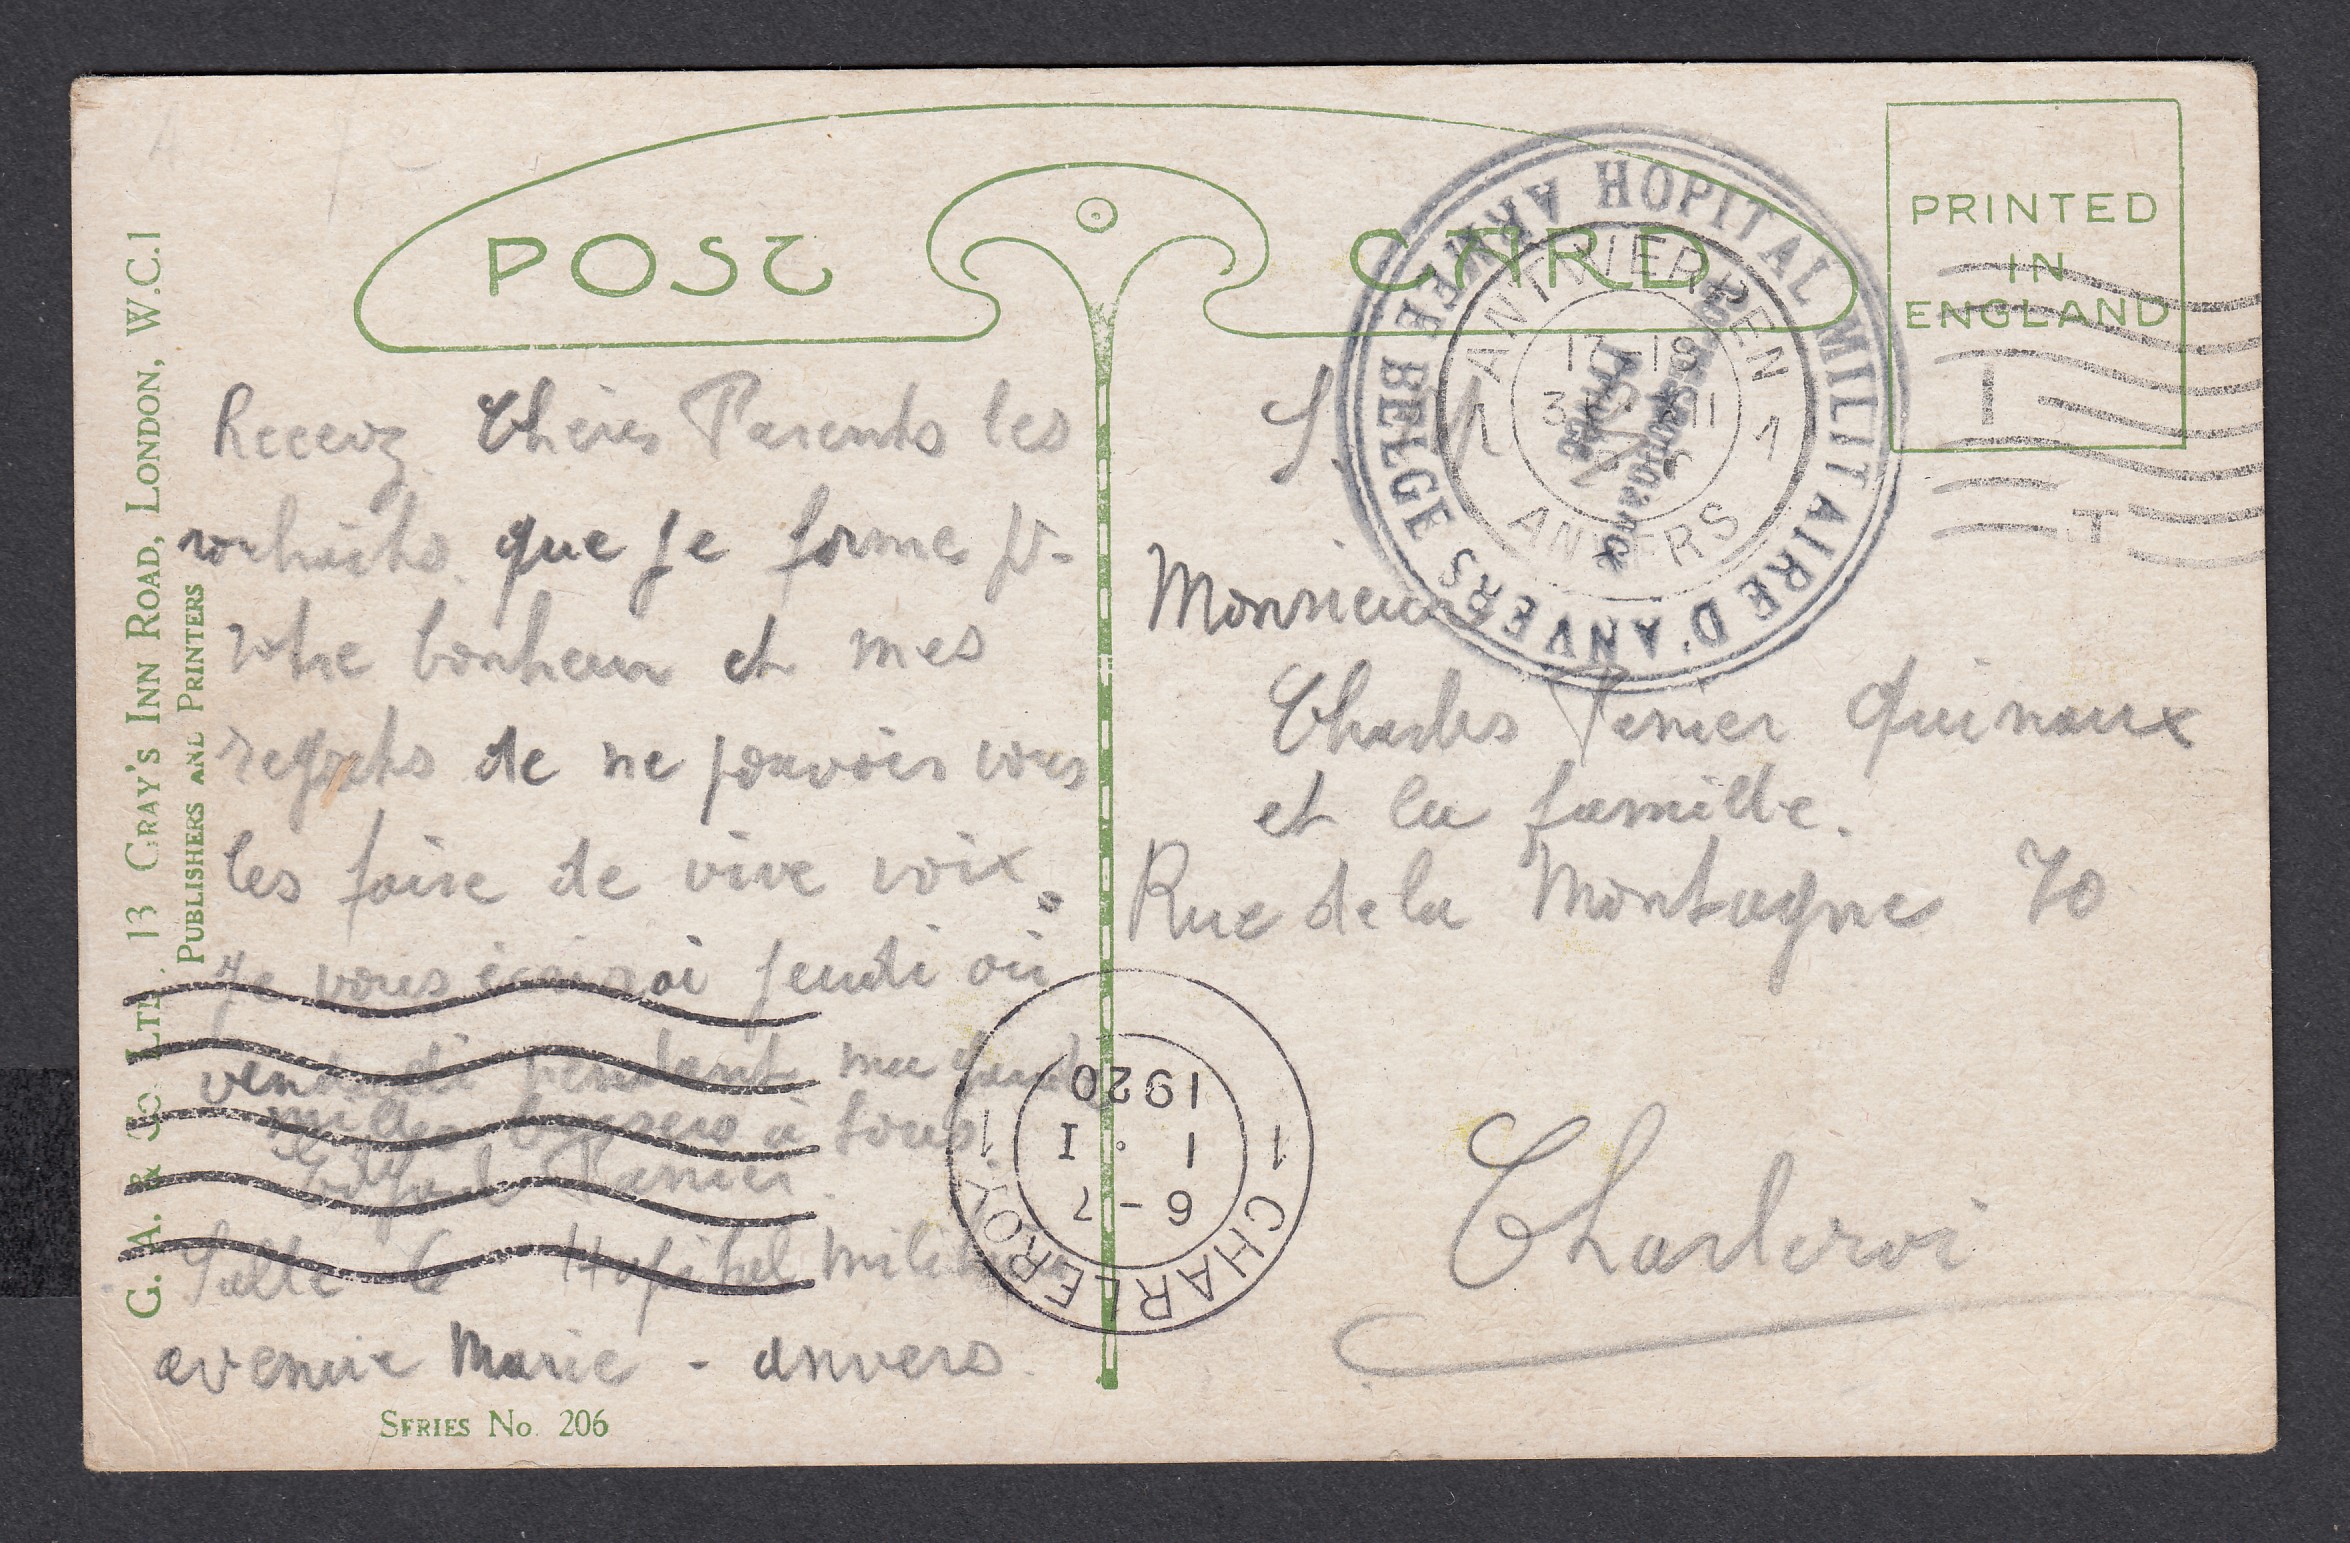 POST CARD
PRINTED
IN
ENGLAND
HOPITAL MILITAIRE D'ANVERS
ARMEE BELGE
ANTWERPEN
17-18
1 1
ANVERS
T
Recevez Chères Parents les
souhaits que je forme pr
votre bonheur et mes
regrets de ne pouvoir vous
les faire de vive voix.
Je vous écrirai jeudi où
vendredi pendant ma garde
mille baisers à tous.
Tenier.
Salle 6 Hopital militaire
avenue Marie - Anvers.
S. M.
Monsieur
Charles Tenier Quinaux
et la famille.
Rue de la Montagne 70
Charleroi
1 CHARLEROY 1
6-7
1 . I
1920
G. A. & Co LTD. 13 GRAY'S INN ROAD, LONDON, W.C.1
PUBLISHERS AND PRINTERS
SERIES No. 206